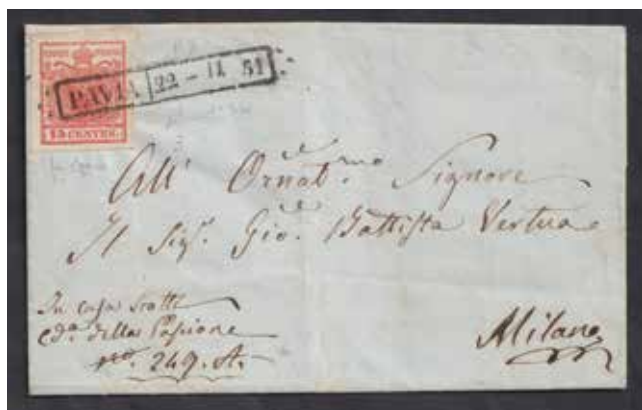 PAVIA 22 - 11 51
15 CENTES.
All' Ornat.mo Signore
Il Sig.r Gio. Battista Vertua
In casa Scotti
C.da della Passione
No. 249. A.
Milano